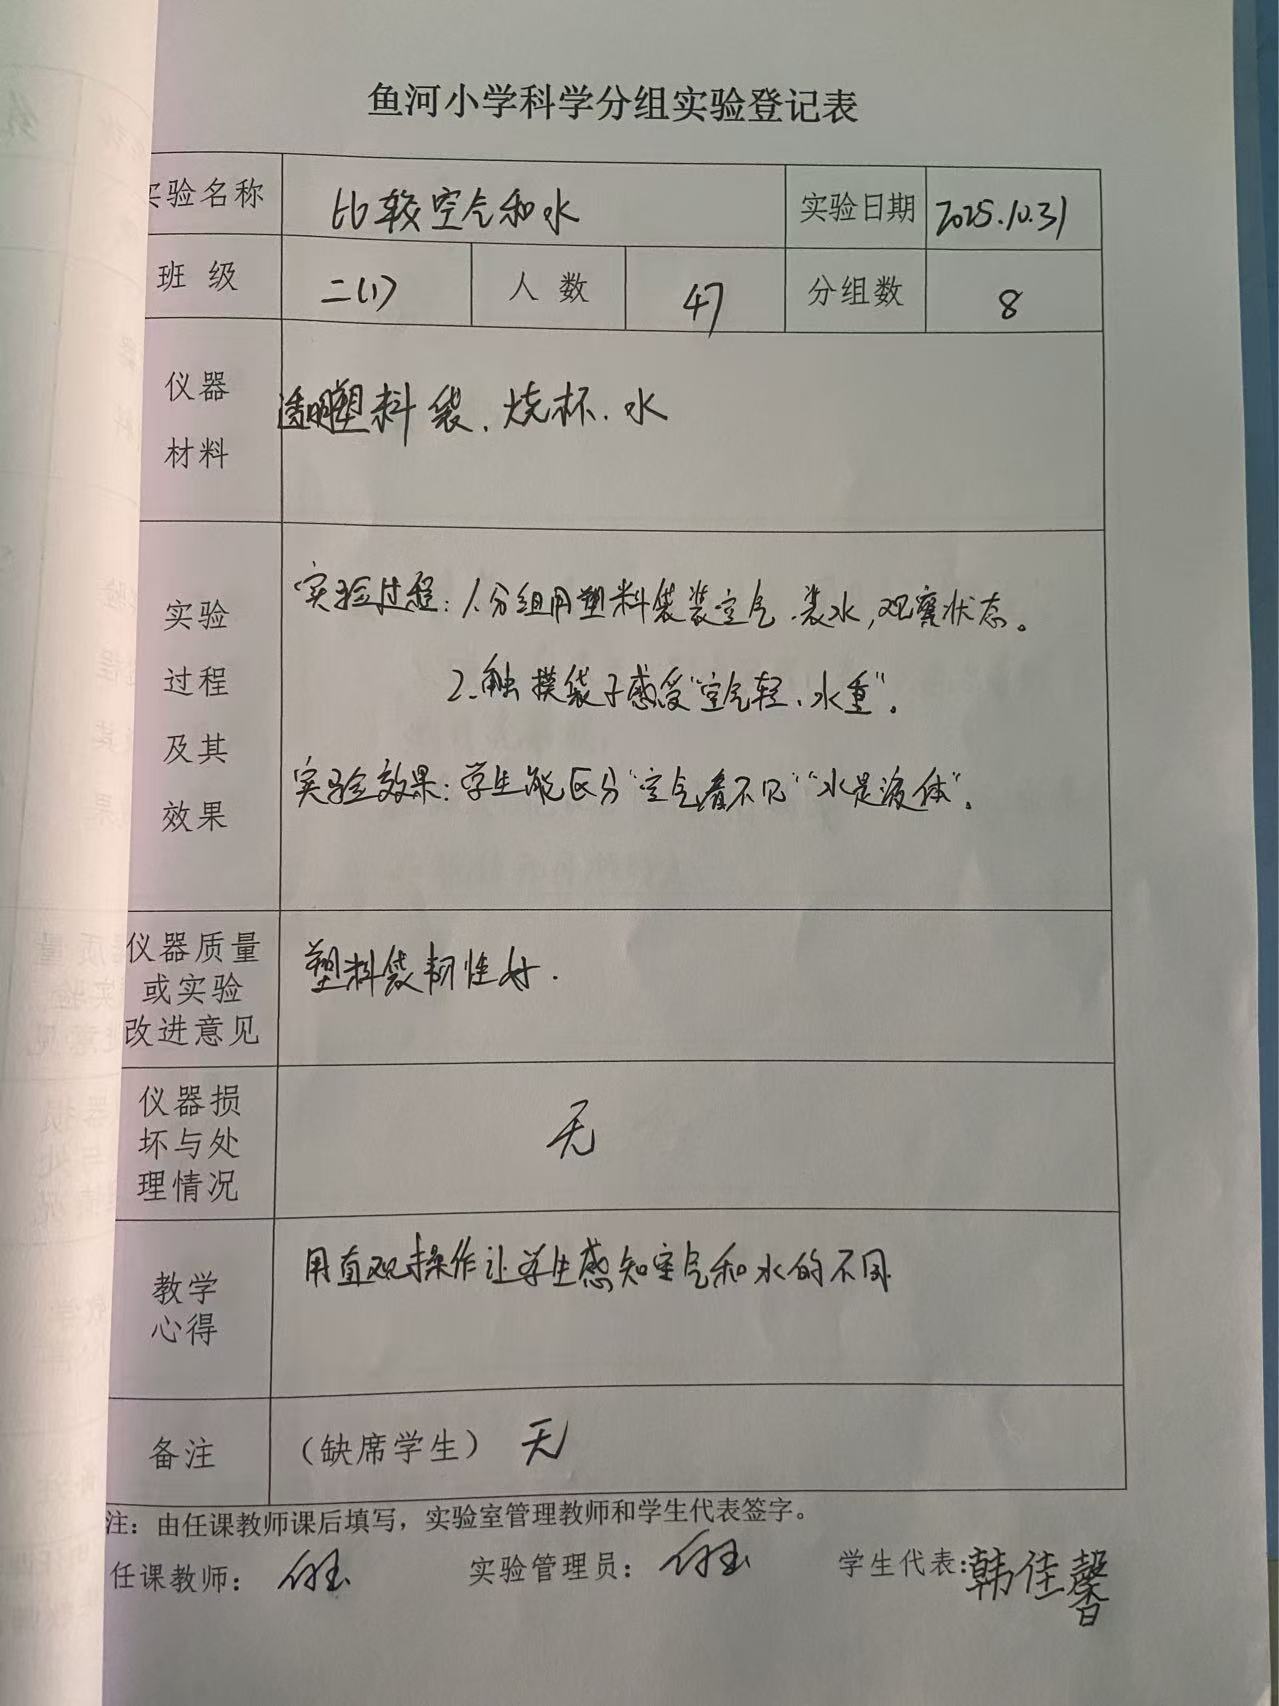 鱼河小学科学分组实验登记表
实验名称 比较空气和水 实验日期 2025.10.31
班 级 二(1) 人 数 47 分组数 8
仪器
材料
透明塑料袋、烧杯、水
实验
过程
及其
效果
实验过程：1.分组用塑料袋装空气、装水，观察状态。
2.触摸袋子感受“空气轻、水重”。
实验效果：学生能区分“空气看不见”“水是液体”。
仪器质量
或实验
改进意见
塑料袋韧性好.
仪器损
坏与处
理情况
无
教学
心得
用直观操作让学生感知空气和水的不同
备注 （缺席学生） 无
注：由任课教师课后填写，实验室管理教师和学生代表签字。
任课教师： 实验管理员： 学生代表:韩佳馨